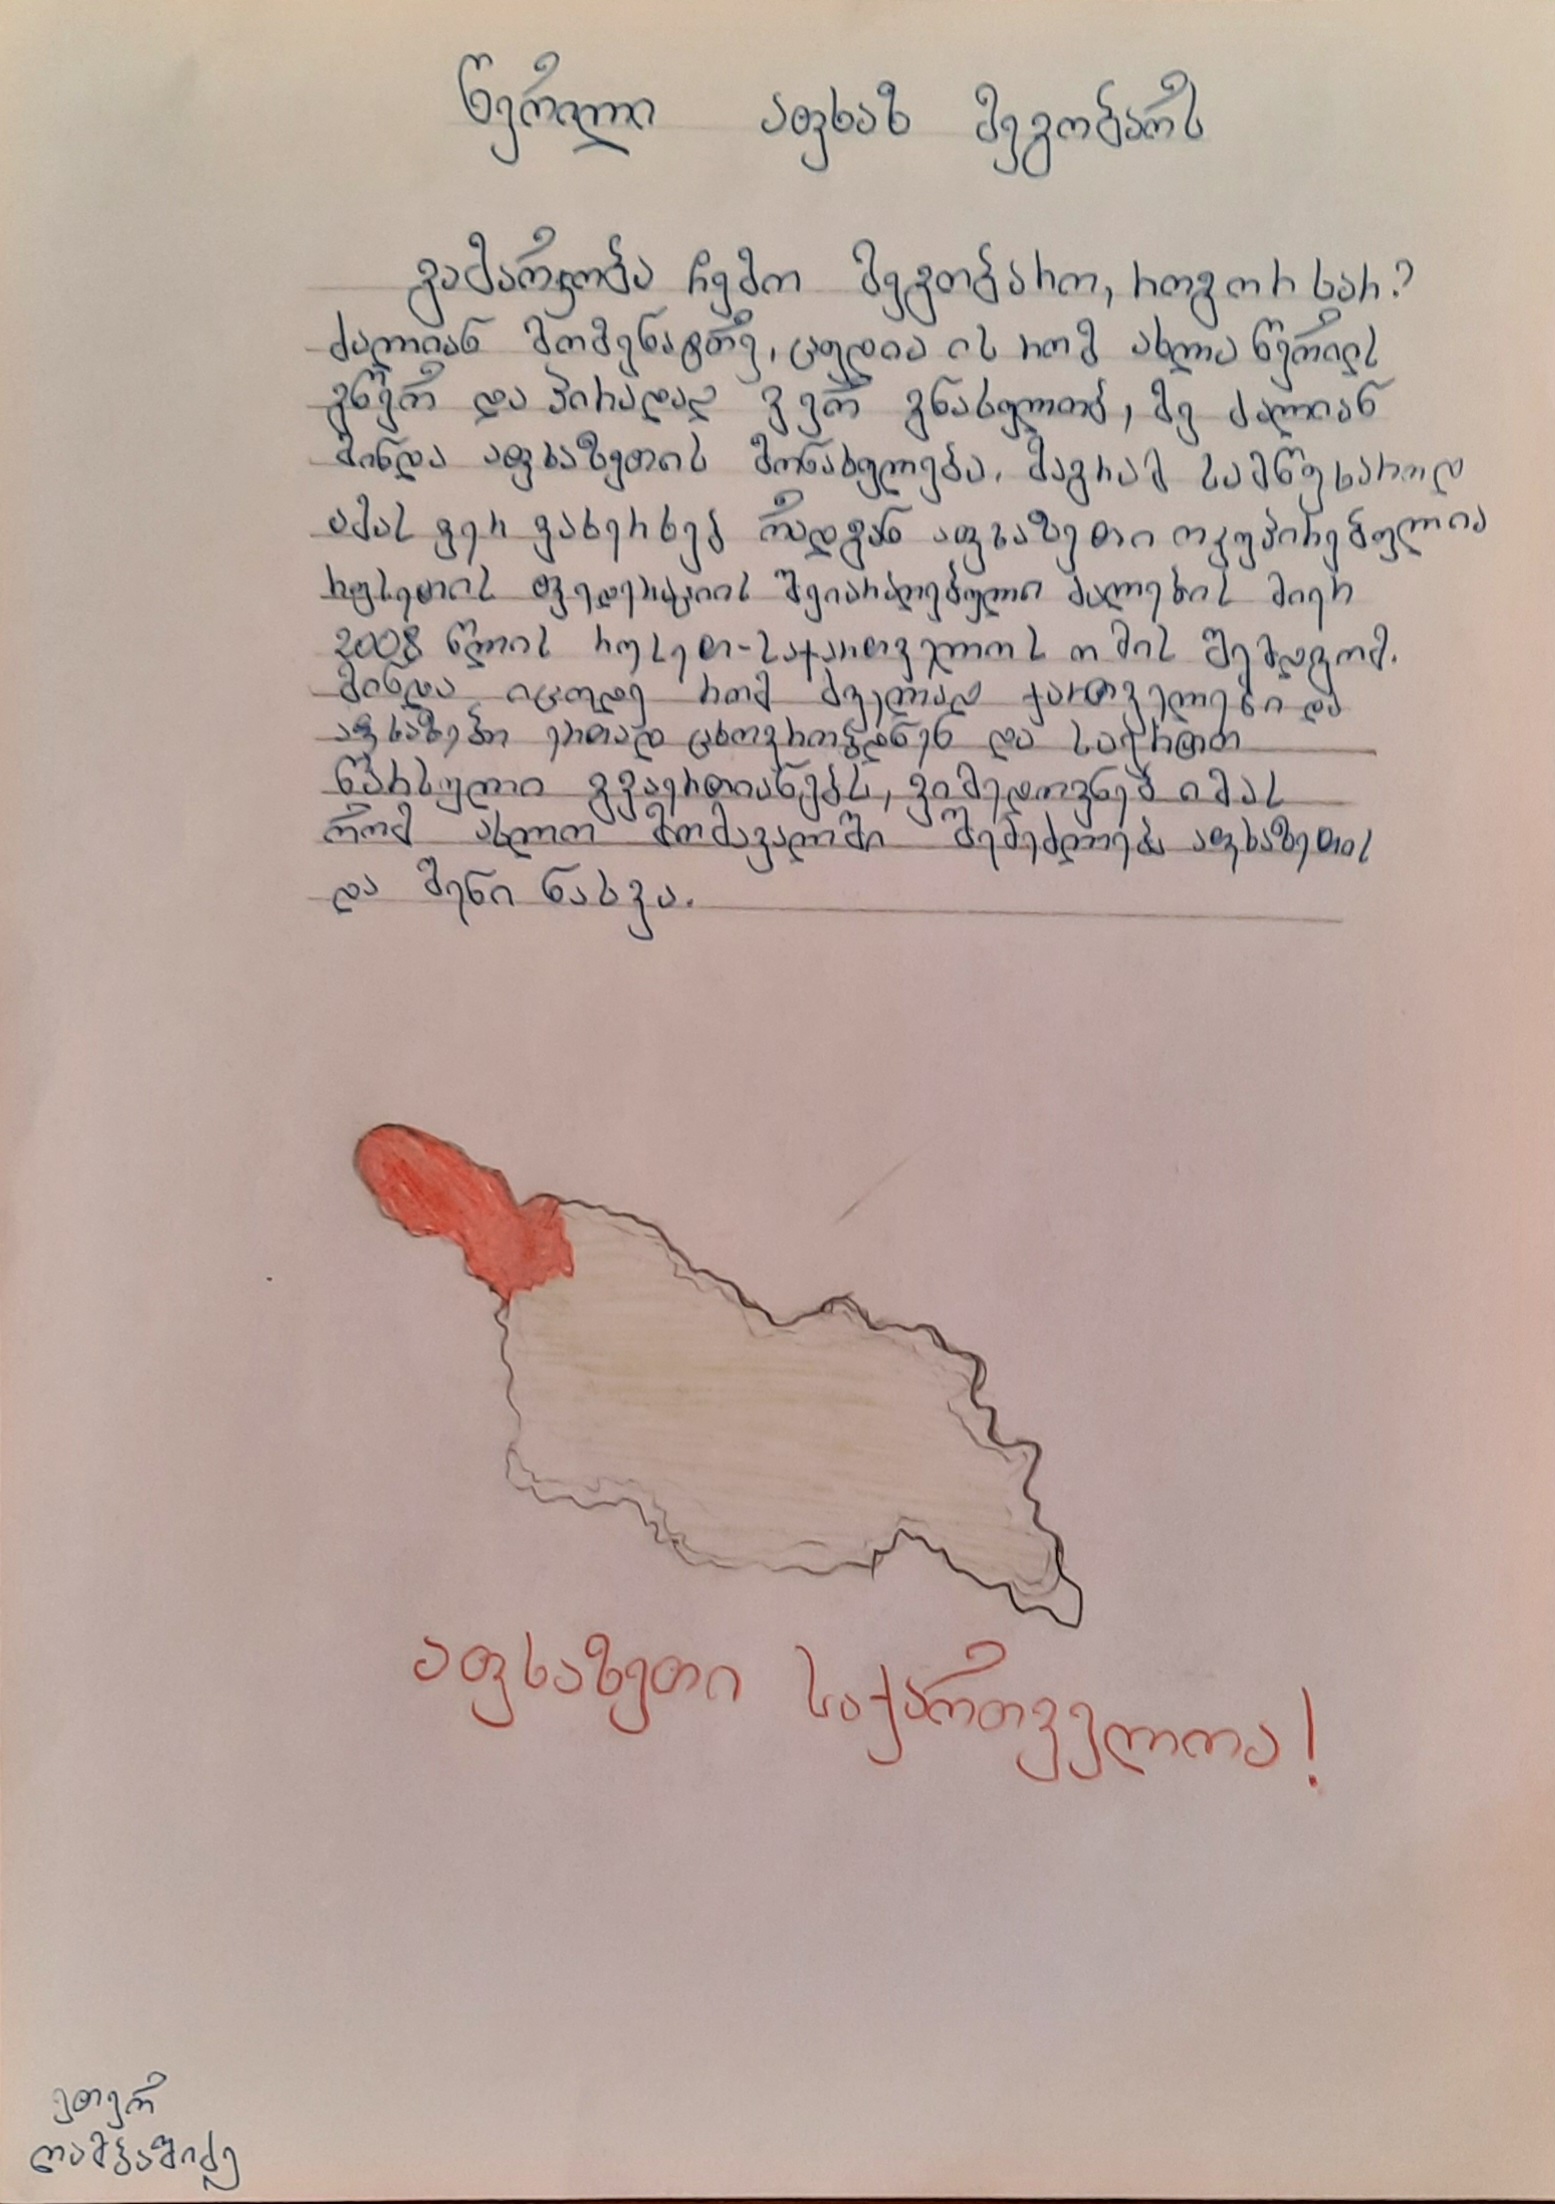 წერილი აფხაზ მეგობარს
გამარჯობა ჩემო მეგობარო, როგორ ხარ?
ძალიან მომენატრე, ცუდია ის რომ ახლა წერილს
გწერ და პირადად ვერ გნახულობ, მე ძალიან
მინდა აფხაზეთის მონახულება. მაგრამ სამწუხაროდ
ამას ვერ ვახერხებ რადგან აფხაზეთი ოკუპირებულია
რუსეთის ფედერაციის შეიარაღებული ძალების მიერ
2008 წლის რუსეთ-საქართველოს ომის შემდგომ.
მინდა იცოდე რომ ძველად ქართველები და
აფხაზები ერთად ცხოვრობდნენ და საერთო
წარსული გვაერთიანებს, ვიმედოვნებ იმას
რომ ახლო მომავალში შემეძლება აფხაზეთის
და შენი ნახვა.
აფხაზეთი საქართველოა!
ეთერ
ლამპაშიძე